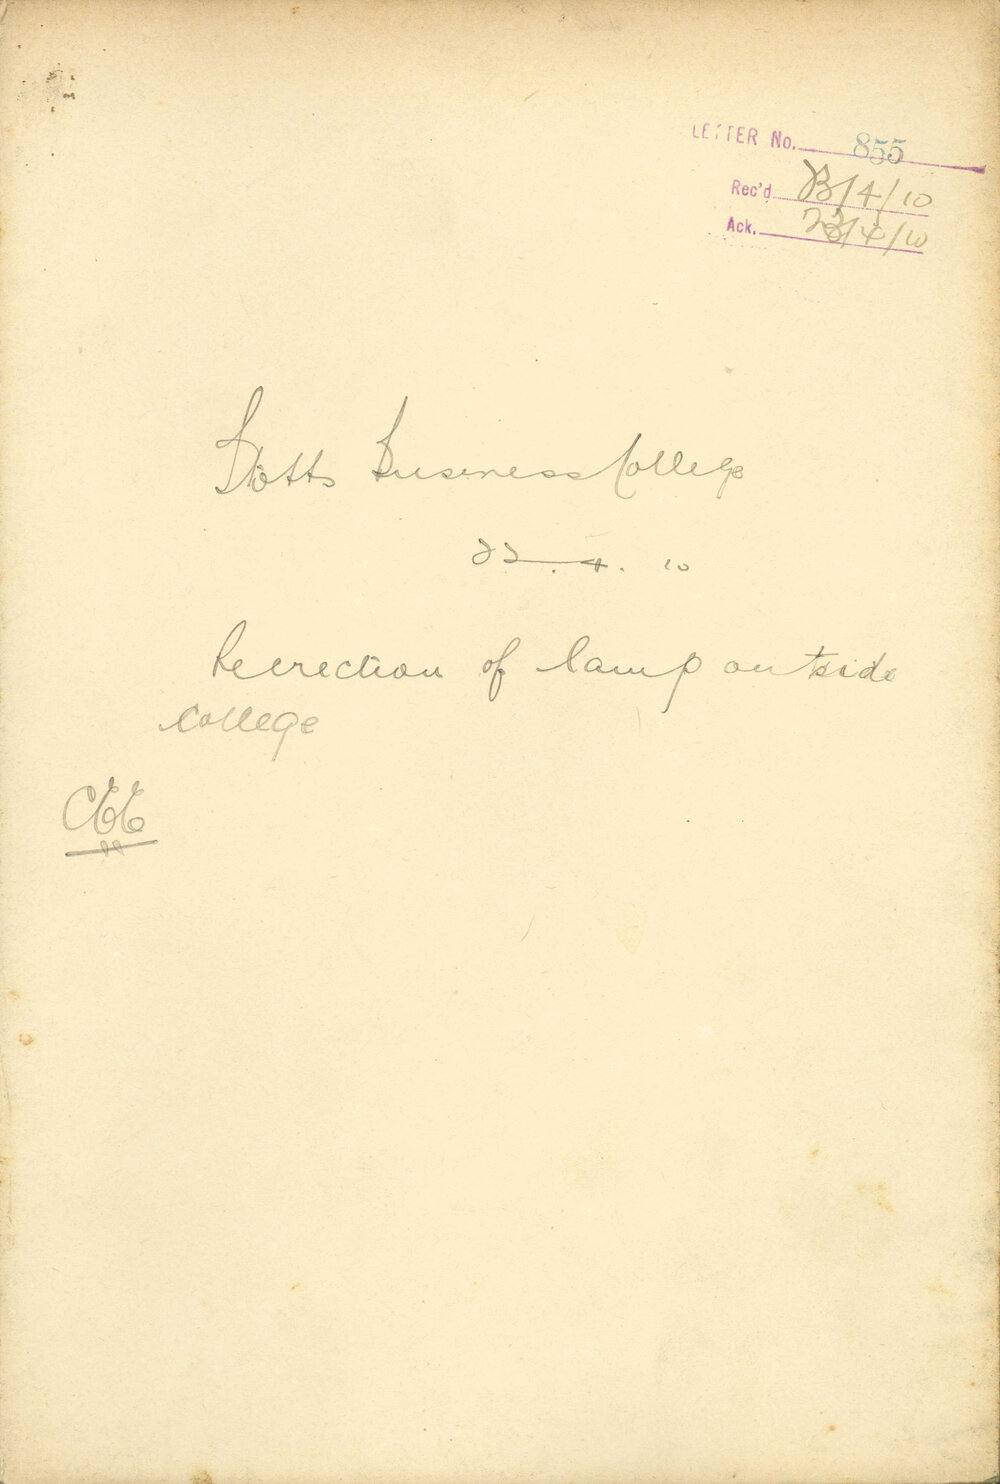 LETTER No. 855
Rec'd 23/4/10
Ack. 23/4/10
Stotts Business College
22.4.10
Reerection of lamp outside
college
CEE